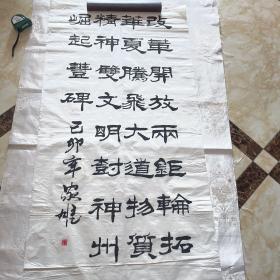 改革開放兩鉅輪拓
華夏騰飛大道物質
精神雙文明尌神州
崛起豐碑
己卯年家雄